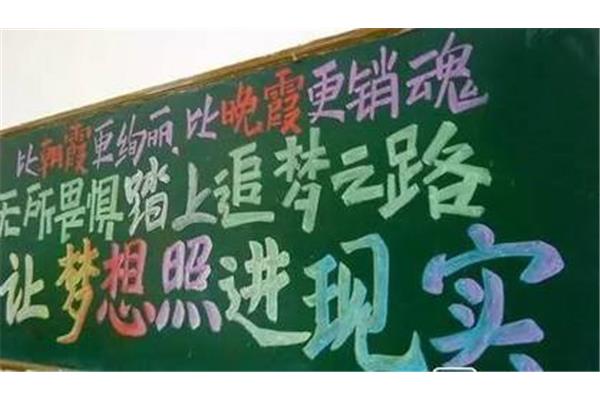 比朝霞更绚丽、比晚霞更销魂
无所畏惧踏上追梦之路
让梦想照进现实